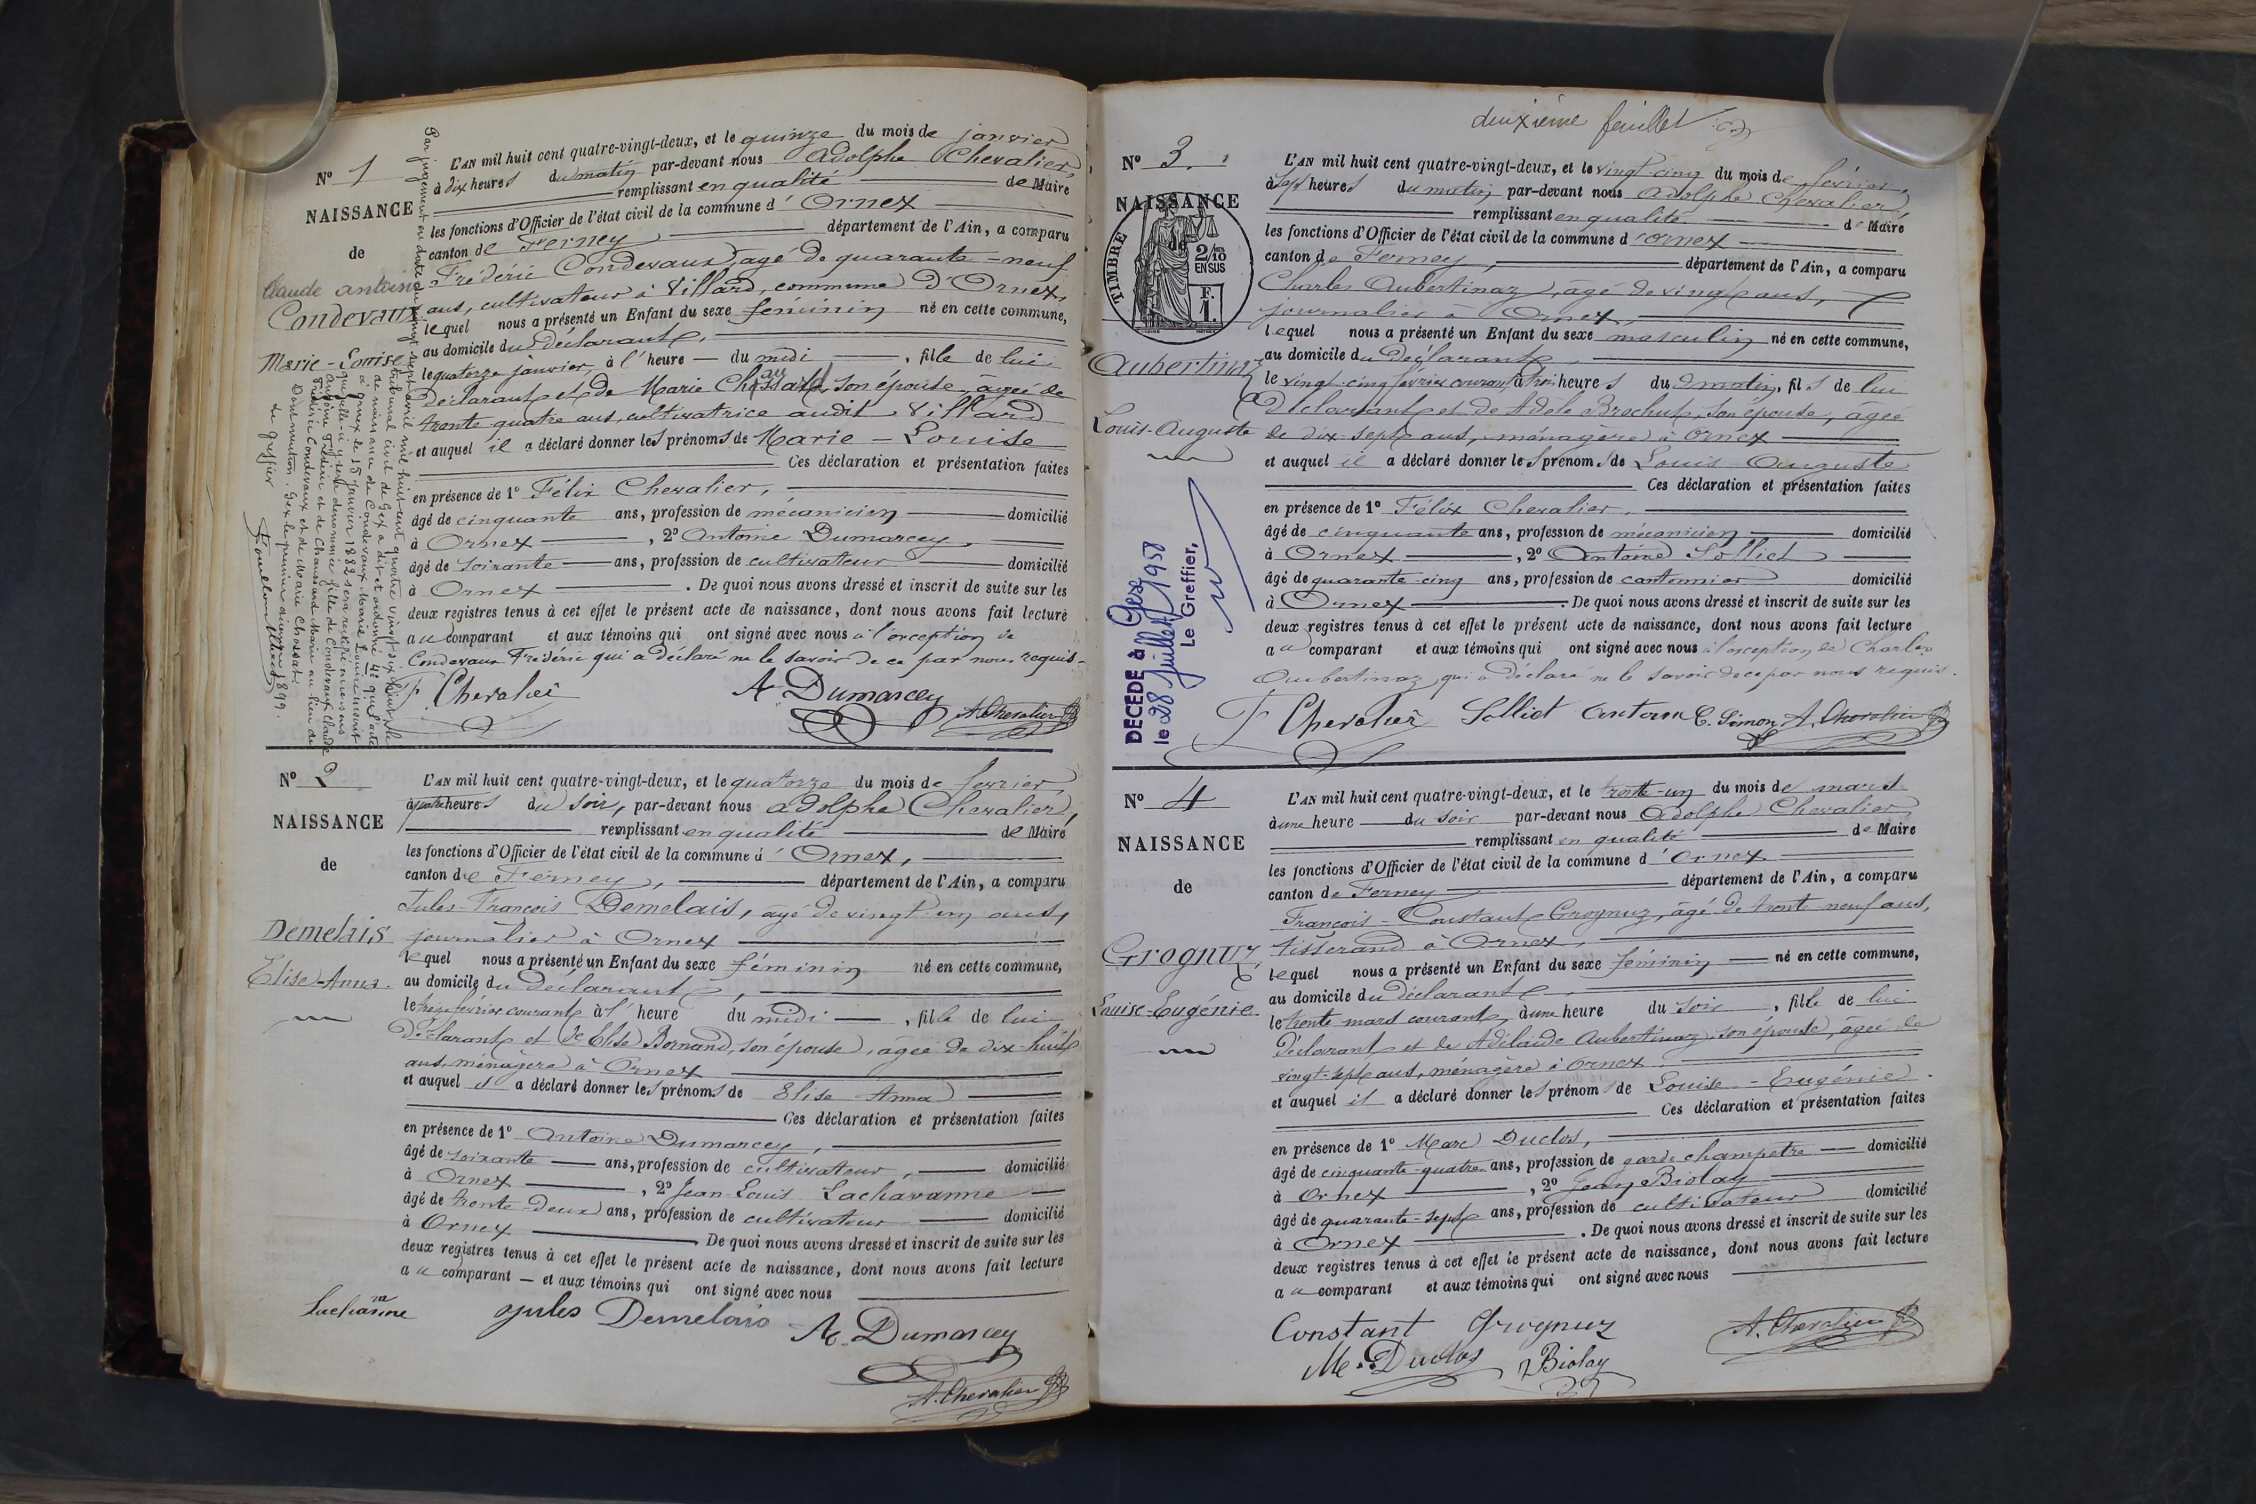 N° 1
NAISSANCE
de
Claude antoine
Condevaux
Marie-Louise
L'AN mil huit cent quatre-vingt-deux, et le quinze du mois de janvier
à dix heures du matin par-devant nous Adolphe Chevalier,
remplissant en qualité de Maire
les fonctions d'Officier de l'état civil de la commune d'Ornex
canton de Ferney département de l'Ain, a comparu
Frédéric Condevaux, agé de quarante-neuf
ans, cultivateur à Villard, commune d'Ornex,
lequel nous a présenté un Enfant du sexe féminin né en cette commune,
au domicile du déclarant,
le quatorze janvier, à l'heure du midi, fille de lui
Déclarant et de Marie Chossat, son épouse, âgée de
trente quatre ans, cultivatrice audit Villard
et auquel il a déclaré donner les prénoms de Marie-Louise
Ces déclaration et présentation faites
en présence de 1° Félix Chevalier,
âgé de cinquante ans, profession de mécanicien domicilié
à Ornex, 2° Antoine Dumarcey,
âgé de soixante ans, profession de cultivateur domicilié
à Ornex. De quoi nous avons dressé et inscrit de suite sur les
deux registres tenus à cet effet le présent acte de naissance, dont nous avons fait lecture
au comparant et aux témoins qui ont signé avec nous à l'exception de
Condevaux Frédéric qui a déclaré ne le savoir de ce par nous requis.
F. Chevalier A. Dumarcey A. Chevalier
Par jugement en date du vingt sept avril mil huit cent quatre vingt dix neuf, le
tribunal civil de Gex a dit et ordonné que l'acte
de naissance de Condevaux Marie Louise inscrit
à Ornex le 15 janvier 1882 sera rectifié en ce sens
que celle-ci y sera dénommée fille de Condevaux Claude
Antoine Frédéric et de Chaussard Marie au lieu de
Frédéric Condevaux et de Marie Chossat.
Dont mention. Gex le premier 1899.
Le greffier
N° 2
NAISSANCE
de
Demelais
Elise-Anna.
L'AN mil huit cent quatre-vingt-deux, et le quatorze du mois de fevrier
à quatre heures du soir, par-devant nous Adolphe Chevalier,
remplissant en qualité de Maire
les fonctions d'Officier de l'état civil de la commune d'Ornex,
canton de Ferney, département de l'Ain, a comparu
Jules-François Demelais, âgé de vingt-un ans,
journalier à Ornex
lequel nous a présenté un Enfant du sexe féminin né en cette commune,
au domicile du déclarant,
le treize février courant à l'heure du midi, fille de lui
Déclarant et de Elise Bornand, son épouse, agée de dix-huit
ans, ménagère à Ornex
et auquel il a déclaré donner les prénoms de Elise Anna
Ces déclaration et présentation faites
en présence de 1° Antoine Dumarcey,
âgé de soixante ans, profession de cultivateur, domicilié
à Ornex, 2° Jean-Louis Lacharanne
âgé de trente-deux ans, profession de cultivateur domicilié
à Ornex. De quoi nous avons dressé et inscrit de suite sur les
deux registres tenus à cet effet le présent acte de naissance, dont nous avons fait lecture
au comparant et aux témoins qui ont signé avec nous
Jules Demelais A. Dumarcey
A. Chevalier
deuxième feuillet
N° 3
NAISSANCE
de
TIMBRE
2/10
EN SUS
F.
1.
Aubertinaz
Louis-Auguste
DECEDE à Gex
le 28 juillet 1958
Le Greffier,
L'AN mil huit cent quatre-vingt-deux, et le vingt-cinq du mois de février,
à sept heures du matin par-devant nous Adolphe Chevalier
remplissant en qualité de Maire
les fonctions d'Officier de l'état civil de la commune d'Ornex
canton de Ferney, département de l'Ain, a comparu
Charles Aubertinaz, agé de vingt ans,
journalier à Ornex,
lequel nous a présenté un Enfant du sexe masculin né en cette commune,
au domicile du déclarant,
le vingt-cinq février courant, à trois heures du matin, fils de lui
Déclarant et de Adèle Brochut, son épouse, agée
de dix-sept ans, ménagère à Ornex
et auquel il a déclaré donner les prénoms de Louis Auguste
Ces déclaration et présentation faites
en présence de 1° Félix Chevalier,
âgé de cinquante ans, profession de mécanicien domicilié
à Ornex, 2° Antoine Solliet
âgé de quarante-cinq ans, profession de cantonnier domicilié
à Ornex. De quoi nous avons dressé et inscrit de suite sur les
deux registres tenus à cet effet le présent acte de naissance, dont nous avons fait lecture
au comparant et aux témoins qui ont signé avec nous à l'exception de Charles
Aubertinaz, qui a déclaré ne le savoir de ce par nous requis.
F Chevalier Solliet Antoine C. Simon A. Chevalier
N° 4
NAISSANCE
de
Grognuz,
Louise-Eugénie
L'AN mil huit cent quatre-vingt-deux, et le trente-un du mois de mars
à une heure du soir par-devant nous Adolphe Chevalier
remplissant en qualité de Maire
les fonctions d'Officier de l'état civil de la commune d'Ornex
canton de Ferney département de l'Ain, a comparu
François-Constant Grognuz, âgé de trente neuf ans,
tisserand à Ornex,
lequel nous a présenté un Enfant du sexe féminin né en cette commune,
au domicile du déclarant,
le trente mars courant, à une heure du soir, fille de lui
Déclarant et de Adélaide Aubertinaz, son épouse, âgée de
vingt-sept ans, ménagère à Ornex
et auquel il a déclaré donner les prénoms de Louise-Eugénie.
Ces déclaration et présentation faites
en présence de 1° Marc Duclos,
âgé de cinquante-quatre ans, profession de garde champetre domicilié
à Ornex, 2° Jean Biolay
âgé de quarante-sept ans, profession de cultivateur domicilié
à Ornex. De quoi nous avons dressé et inscrit de suite sur les
deux registres tenus à cet effet le présent acte de naissance, dont nous avons fait lecture
au comparant et aux témoins qui ont signé avec nous
Constant Grognuz A. Chevalier
M. Duclos J Biolay